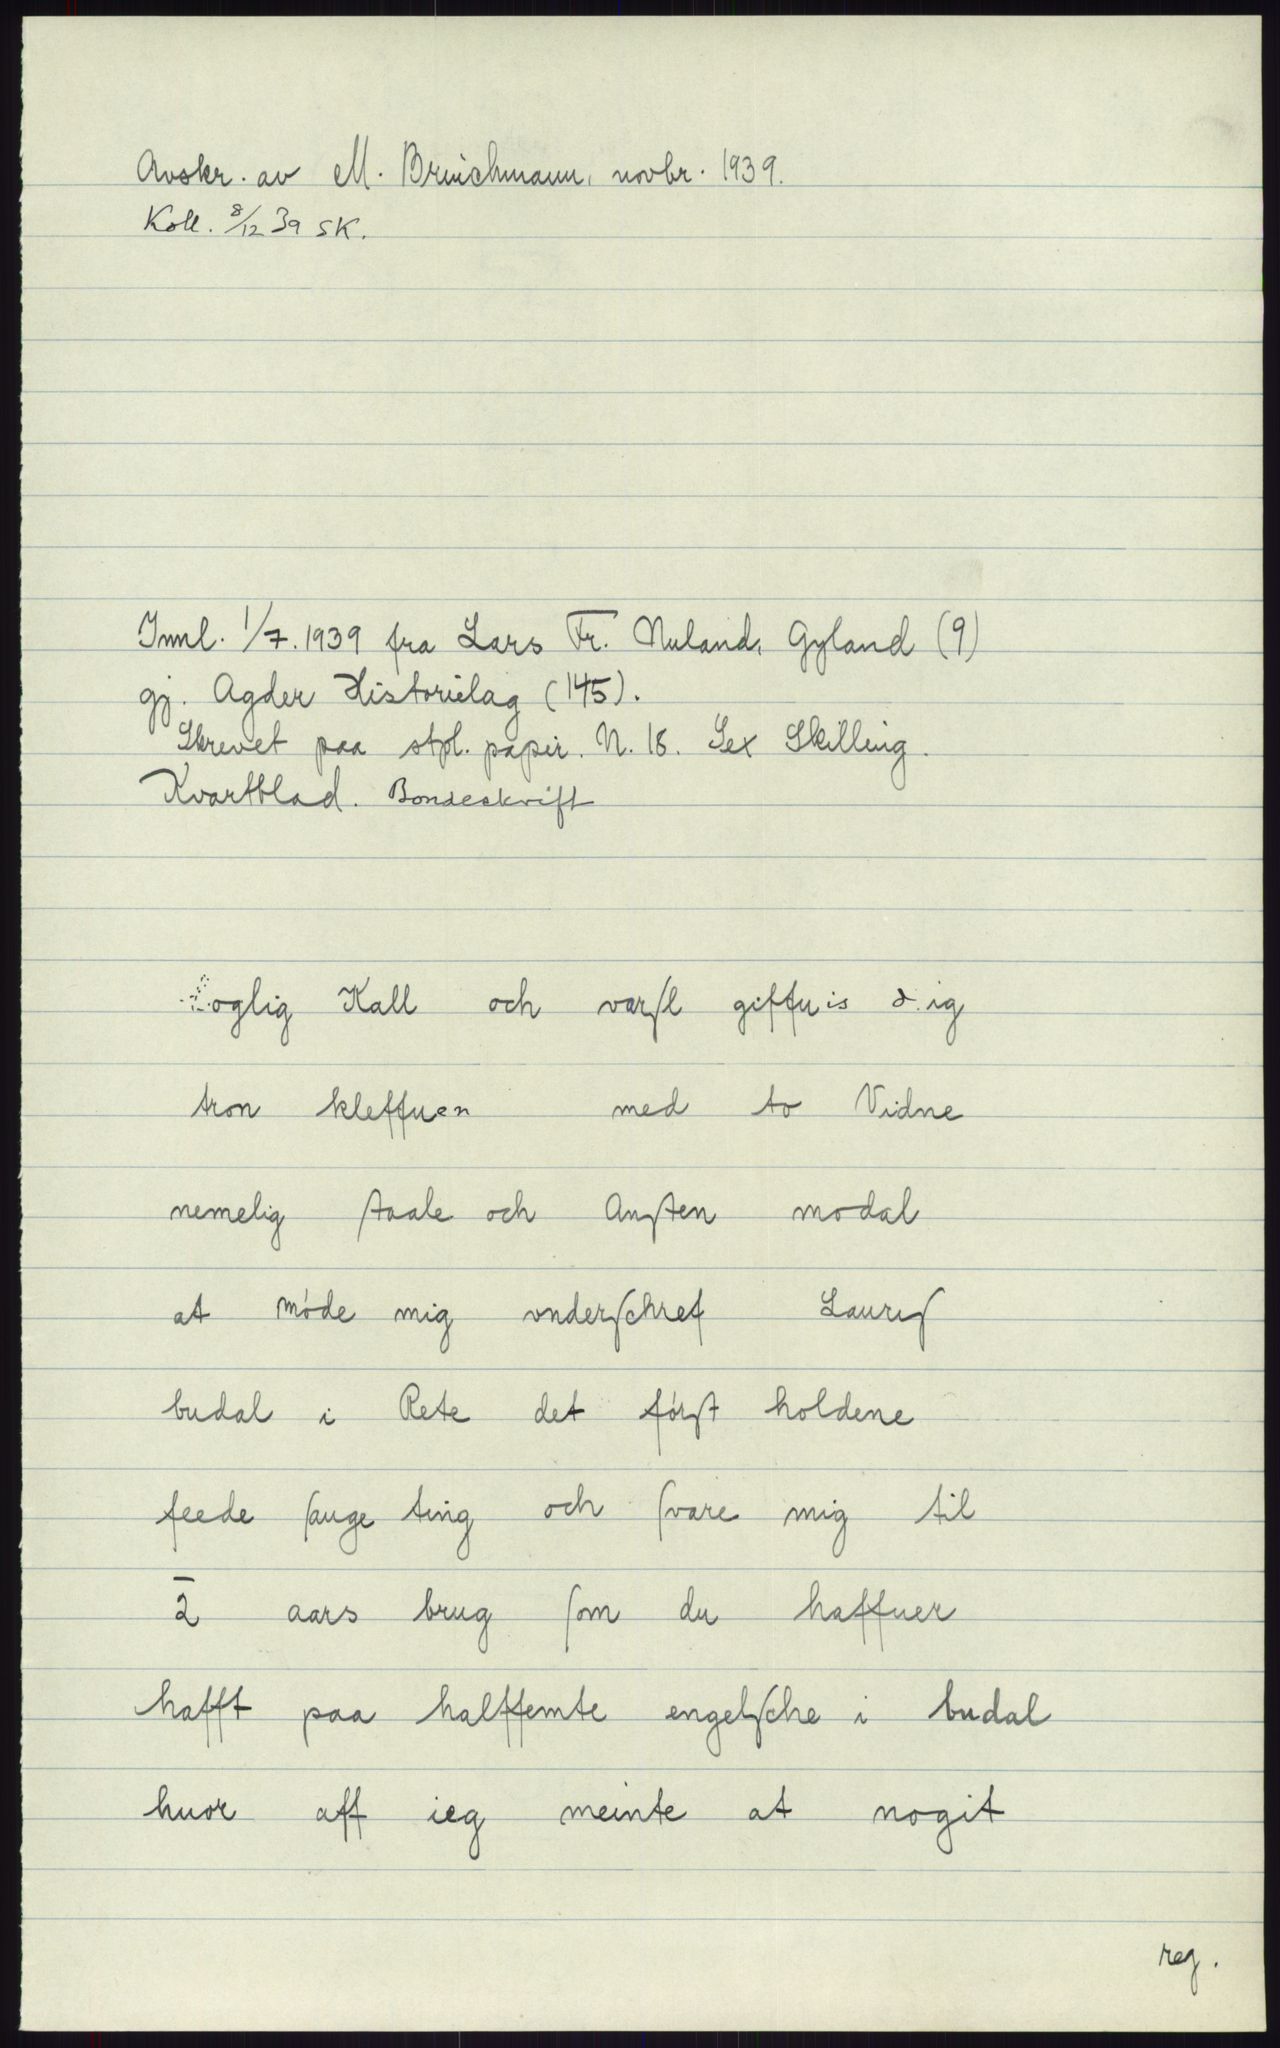 Avskr. av M. Brinchmann, novbr. 1939.
Koll. 8/12 39 SK.
Innl. 1/7. 1939 fra Lars Fr. Nuland, Gyland (9)
gj. Agder Historielag (145).
Skrevet paa stpl. papir. N. 18. Sex Skilling.
Kvartblad. Bondeskrift
Loglig Kall och varſl giffuis dig
tron kleffuen med to Vidne
nemelig ſtaale och Anſten modal
at møde mig vnderſchref Laurſ
budal i Rete det førſt holdene
feede ſauge ting och ſvare mig til
2 aars brug ſom du haffuer
hafft paa halffemte engelſche i budal
huor aff ieg meinte at nogit
reg.